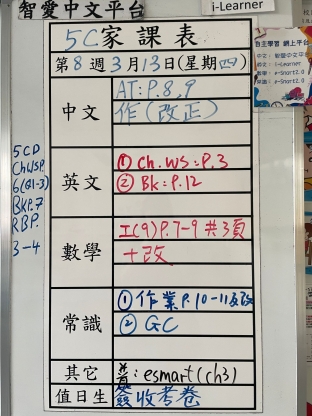 智愛中文平台
i-Learner
5C家課表
第8週3月13日(星期四)
中文
AT:P.8,9
作(改正)
英文
① Ch.WS:P.3
② BK:P.12
數學
工(9)P.7-9 共3頁
+改
常識
①作業P.10-11及改
② GC
其它
普:esmart(ch3)
值日生
簽收考卷
5CD
ChWSP.
6(Q1-3)
BKP.7
RBP.
3-4
自主學習 網上平台
中文: 智愛中文平台
英文: i-Learner
數學: e-Smart2.0
常識: e-Smart2.0